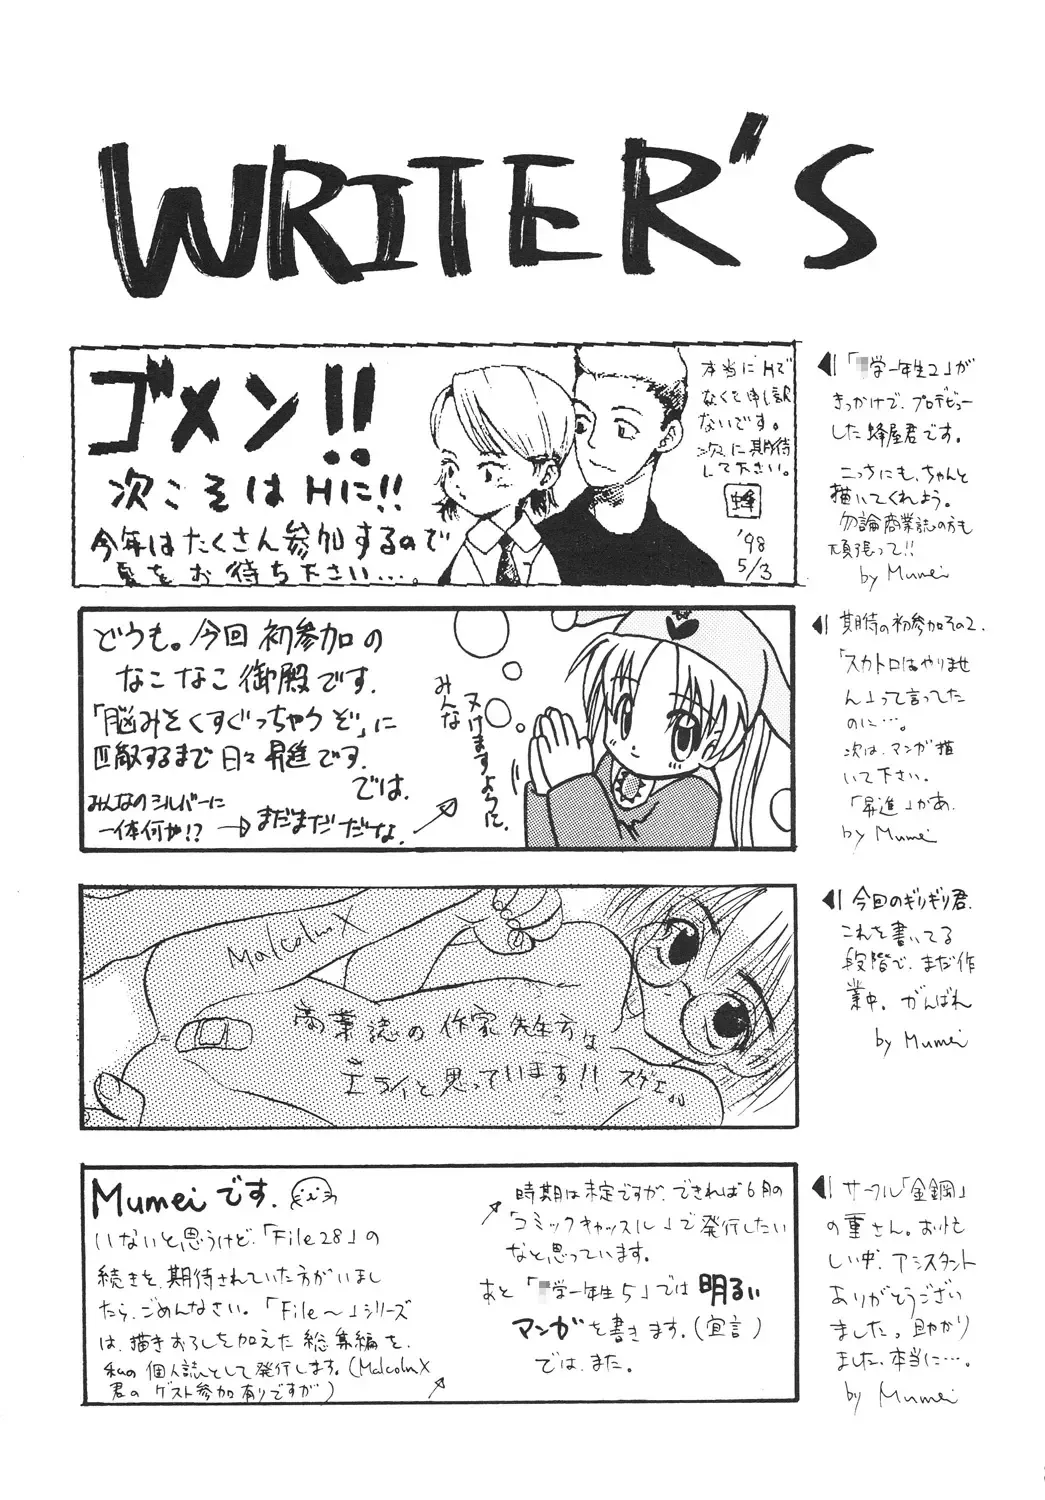 WRITER'S
ゴメン!!
次こそはHに!!
今年はたくさん参加するので
夏をお待ち下さい…。
本当にHで
なくて申し訳
ないです。
次に期待
して下さい。
蜂
'98
5/3
「学一年生2」が
きっかけで、プロデビュー
した蜂屋君です。
こっちにも、ちゃんと
描いてくれよう。
勿論商業誌の方も
頑張って!!
by Mumei
どうも。今回初参加の
なこなこ御殿です。
「脳みそくすぐっちゃうぞ」に
匹敵するまで日々昇進です。
では。
みんなのシルバーに
一体何が!?
まだまだだな。
みんな
ヌけますように。
期待の初参加その2.
「スカトロはやりませ
ん」って言ってた
のに…。
次は、マンガ描
いて下さい。
「昇進」かあ.
by Mumei
Malcolm X
商業誌の作家先生方は
エライと思っています!!スゲェ。
今回のギリギリ君.
これを書いてる
段階で、まだ作
業中。がんばれ
by Mumei
Mumeiです.
いないと思うけど、「File28」の
続きを、期待されていた方がいまし
たら、ごめんなさい。「File〜」シリーズ
は、描きおろしを加えた総集編を、
私の個人誌として発行します。(MalcolmX
君のゲスト参加有りですが)
時期は未定ですが、できれば6月の
「コミックキャッスル」で発行したい
なと思っています。
あと「学一年生5」では明るい
マンガを書きます。(宣言)
では、また。
サークル「金鋼」
の重さん。お忙
しい中、アシスタント
ありがとうござい
ました。助かり
ました、本当に…。
by Mumei